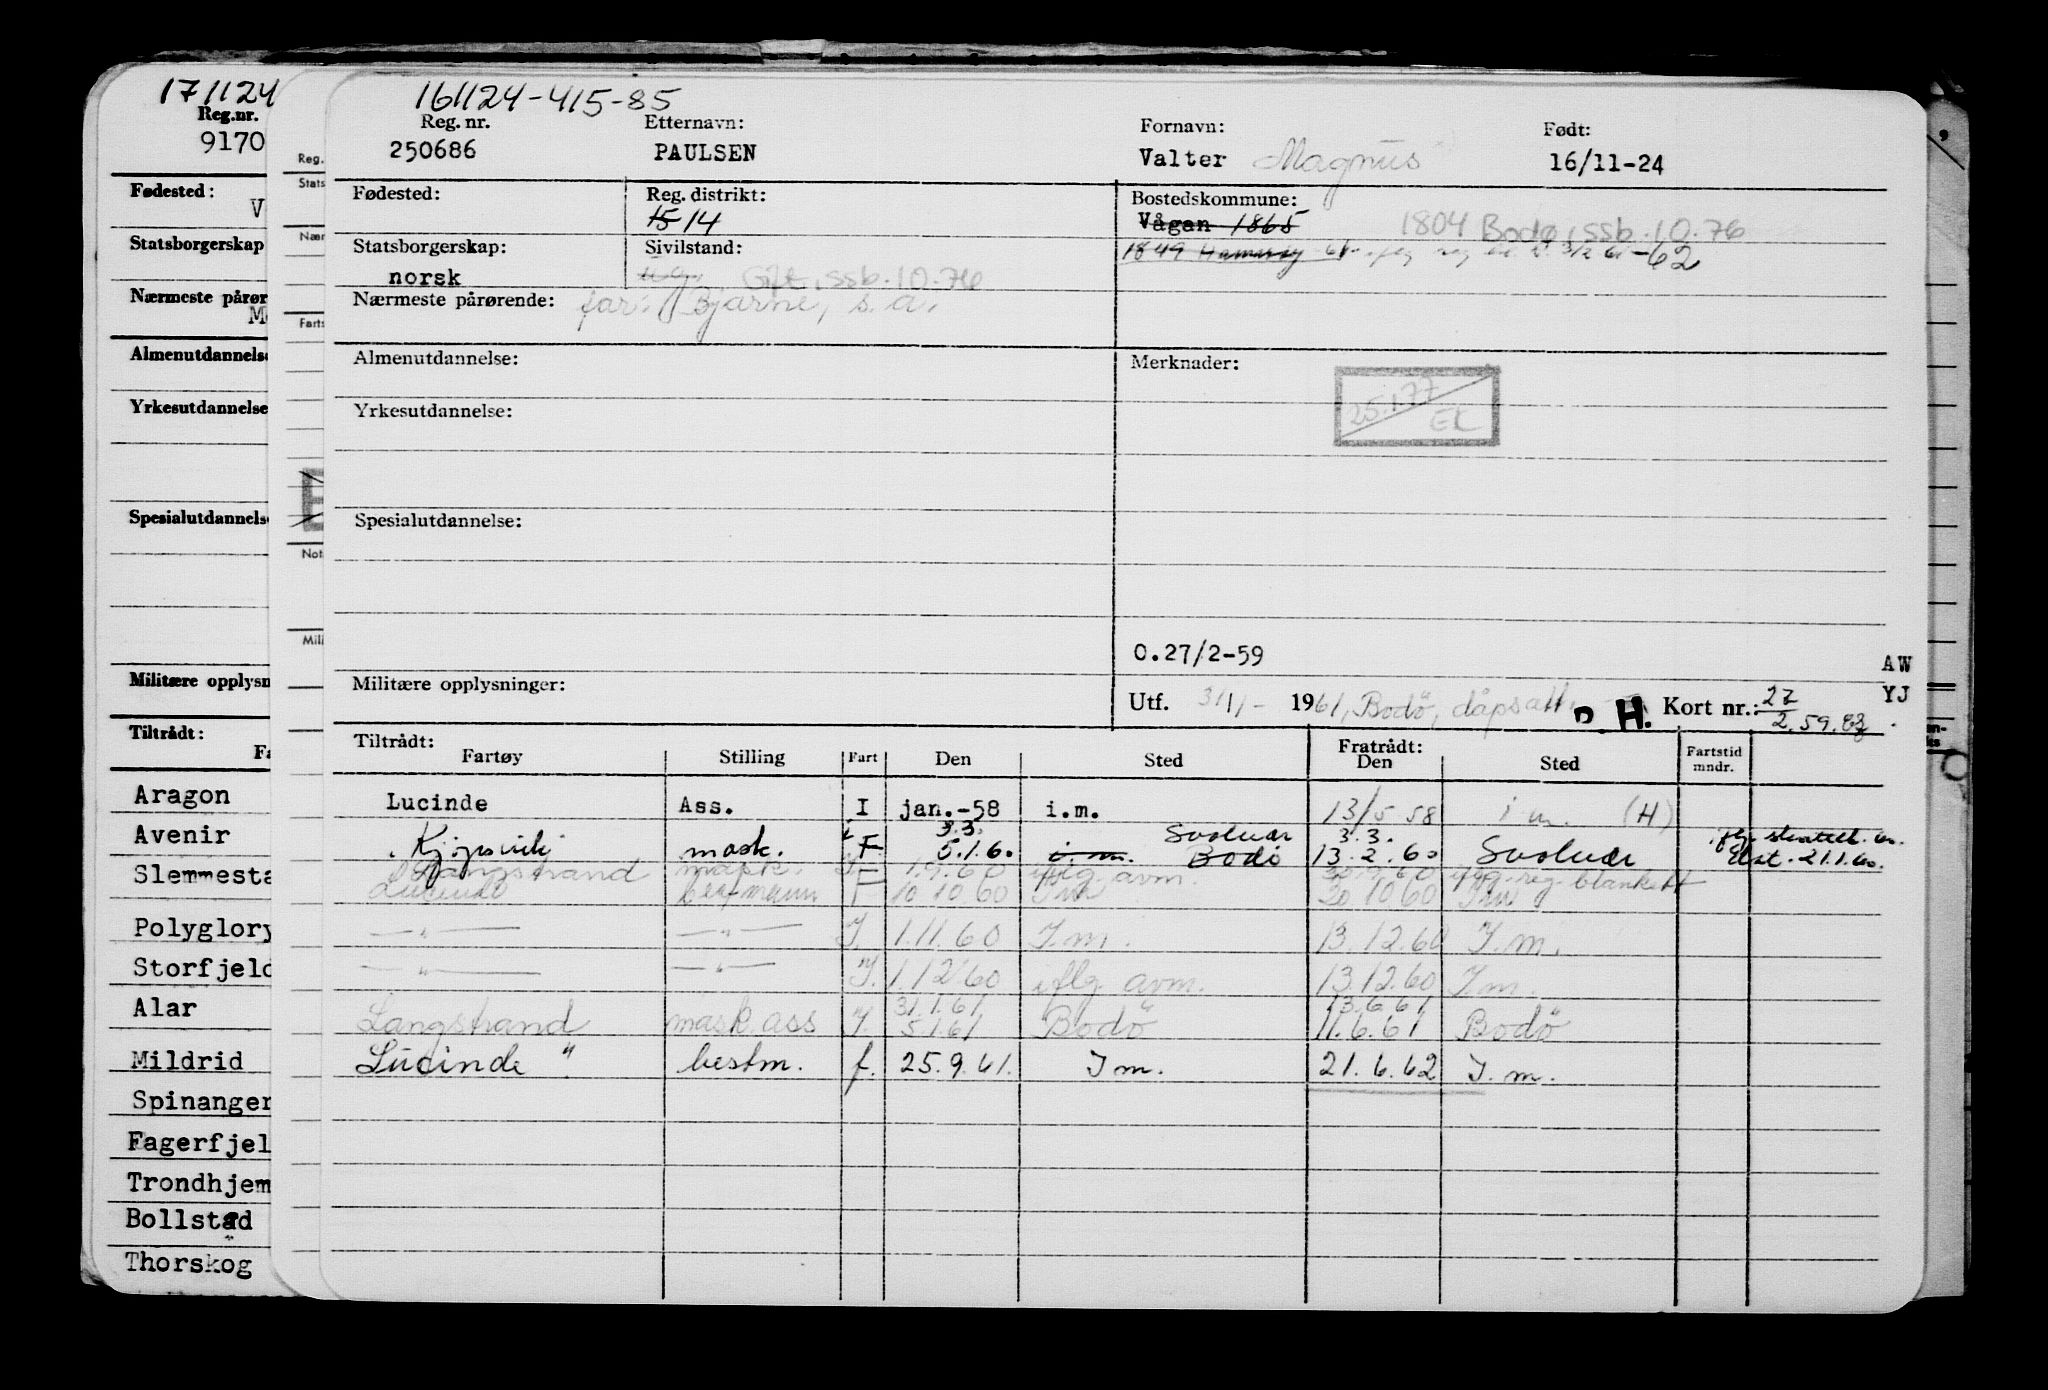 171124
Reg.nr.
9170
Fødested:
V
Statsborgerskap
Nærmeste pårør
M
Almenutdannelse
Yrkesutdannelse
Spesialutdannelse
Militære opplysn
Tiltrådt:
Fa
Aragon
Avenir
Slemmesta
Polyglory
Storfjeld
Alar
Mildrid
Spinanger
Fagerfjel
Trondhjem
Bollstad
Thorskog
Reg.
Stats
Nær
Farts
Not
Mili
161124-415-85
Reg. nr. Etternavn: Fornavn: Født:
250686 PAULSEN Valter Magnus 16/11-24
Fødested: Reg. distrikt: Bostedskommune:
15 14 Vågan 1865 1804 Bodø, ssb. 10.76
Statsborgerskap: Sivilstand: 1849 Hamarøy -62
norsk Ug. Gift, ssb. 10.76
Nærmeste pårørende: far: Bjarne, s.a.
Almenutdannelse: Merknader:
25.1.77
EK
Yrkesutdannelse:
Spesialutdannelse:
0.27/2-59
AW
Militære opplysninger: Utf. 31/1- 1961, Bodö, dåpsatt. H. Kort nr.: 27/2.59. YJ
Tiltrådt: Fratrådt:
Fartøy Stilling Fart Den Sted Den Sted Fartstid mndr.
Lucinde Ass. I jan.-58 i.m. 13/5 58 i m. (H)
3.3. Svolvær 3.3.
mask. F 5.1.60 i.m. Bodö 13.2.60 Svolvær 21.1.60.
Langstrand mask. F 1.9.60 avm. 30.9.60 reg. blankett
Lucinde bestmann F 10 10 60 Im 20 10 60 Im
—"— —"— I. 1.11.60 I.m. 13.12.60 I.m.
—"— —"— I. 1.12.60 avm. 13.12.60 I.m.
31.1.61 13.6.61
Langstrand mask.ass I. 5.1.61 Bodö 11.6.61 Bodö
Lucinde " bestm. f. 25.9.61. I m. 21.6.62 I.m.